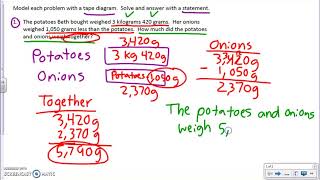 Model each problem with a tape diagram. Solve and answer with a statement.
1 The potatoes Beth bought weighed 3 kilograms 420 grams. Her onions
weighed 1,050 grams less than the potatoes. How much did the potatoes
and onions weigh together?
3,420g
Potatoes 3 kg 420g
Onions Potatoes 1,050g
2,370g
Together
3,420g
2,370g
5,790g
Onions
3,420g
- 1,050g
2,370g
The potatoes and onions
weigh 5,